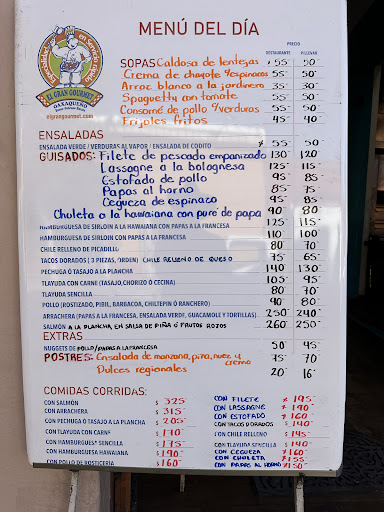 MENÚ DEL DÍA
EL GRAN GOURMET
OAXAQUEÑO
elgrangourmet.com
PRECIO
RESTAURANTE P/LLEVAR
SOPAS Caldosa de lentejas $ 55 50
Crema de chayote y espinacas 55 50
Arroz blanco a la jardinera 35 30
Spaguetty con tomate 55 50
Consomé de pollo y verduras 55 50
Frijoles fritos 45 40
ENSALADAS
ENSALADA VERDE / VERDURAS AL VAPOR / ENSALADA DE CODITO $ 55 50
GUISADOS: Filete de pescado empanizado 130 120
Lassagne a la bolognesa 125 115
Estofado de pollo 95 85
Papas al horno 85 75
Cegueza de espinazo 95 85
Chuleta a la hawaiana con puré de papa 90 80
HAMBURGUESA DE SIRLOIN A LA HAWAIANA CON PAPAS A LA FRANCESA 125 115
HAMBURGUESA DE SIRLOIN CON PAPAS A LA FRANCESA 110 100
CHILE RELLENO DE PICADILLO 80 70
TACOS DORADOS ( 3 PIEZAS, ORDEN) CHILE RELLENO DE QUESO 75 65
PECHUGA Ó TASAJO A LA PLANCHA 140 130
TLAYUDA CON CARNE (TASAJO, CHORIZO Ó CECINA) 105 95
TLAYUDA SENCILLA 80 70
POLLO (ROSTIZADO, PIBIL, BARBACOA, CHILTEPIN Ó RANCHERO) 90 80
ARRACHERA (PAPAS A LA FRANCESA, ENSALADA VERDE, GUACAMOLE Y TORTILLAS) 250 240
SALMÓN A LA PLANCHA EN SALSA DE PIÑA Ó FRUTOS ROJOS 260 250
EXTRAS
NUGGETS DE POLLO / PAPAS A LA FRANCESA 50 45
POSTRES: Ensalada de manzana, piña, nuez y crema 75 70
Dulces regionales 20 16
COMIDAS CORRIDAS:
CON SALMÓN $ 325
CON ARRACHERA $ 315
CON PECHUGA Ó TASAJO A LA PLANCHA $ 205
CON TLAYUDA CON CARNE $ 170
CON HAMBURGUESA SENCILLA $ 175
CON HAMBURGUESA HAWAIANA $ 190
CON POLLO DE ROSTICERÍA $ 160
CON FILETE $ 195
CON LASSAGNE $ 190
CON ESTOFADO $ 160
CON TACOS DORADOS $ 140
CON CHILE RELLENO $ 145
CON TLAYUDA SENCILLA $ 140
CON CEGUEZA $ 160
CON CHULETA $ 155
CON PAPAS AL HORNO $ 150